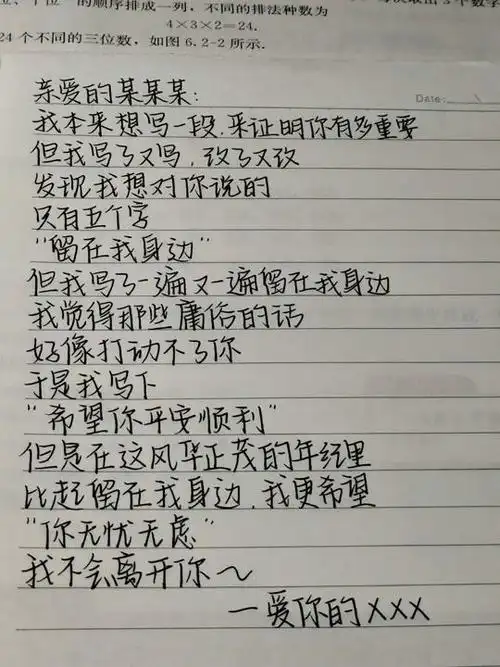 位、十位”的顺序排成一列，不同的排法种数为
4×3×2=24.
24个不同的三位数，如图6.2-2所示.
Date:
亲爱的某某某:
我本来想写一段,来证明你有多重要
但我写了又写,改了又改
发现我想对你说的
只有五个字
“留在我身边”
但我写了一遍又一遍留在我身边
我觉得那些庸俗的话
好像打动不了你
于是我写下
“希望你平安顺利”
但是在这风华正茂的年纪里
比起留在我身边,我更希望
“你无忧无虑”
我不会离开你~
—爱你的XXX